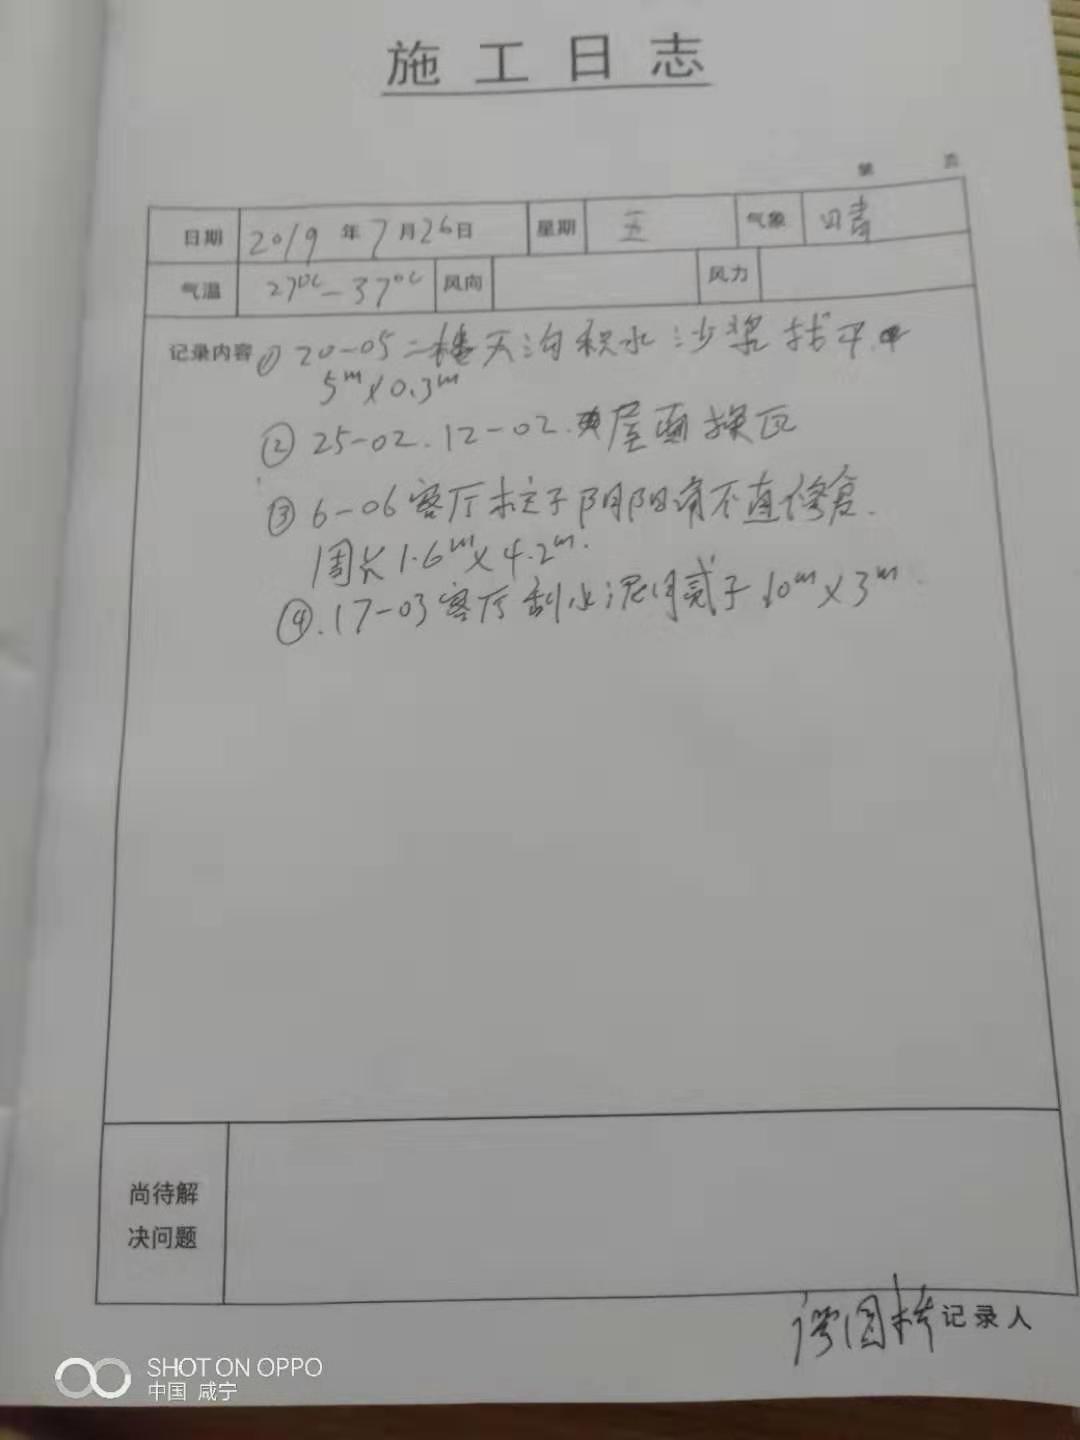 施工日志
第 页
日期 2019年7月26日 星期 五 气象 晴
气温 27°C-37°C 风向 风力
记录内容 ① 20-05二楼天沟积水沙浆找平.
5m×0.3m
② 25-02.12-02.屋面换瓦
③ 6-06客厅柱子阴阳角不直修复.
周长1.6m×4.2m.
④.17-03客厅刮水泥 子10m×3m.
尚待解
决问题
记录人
SHOT ON OPPO
中国 咸宁